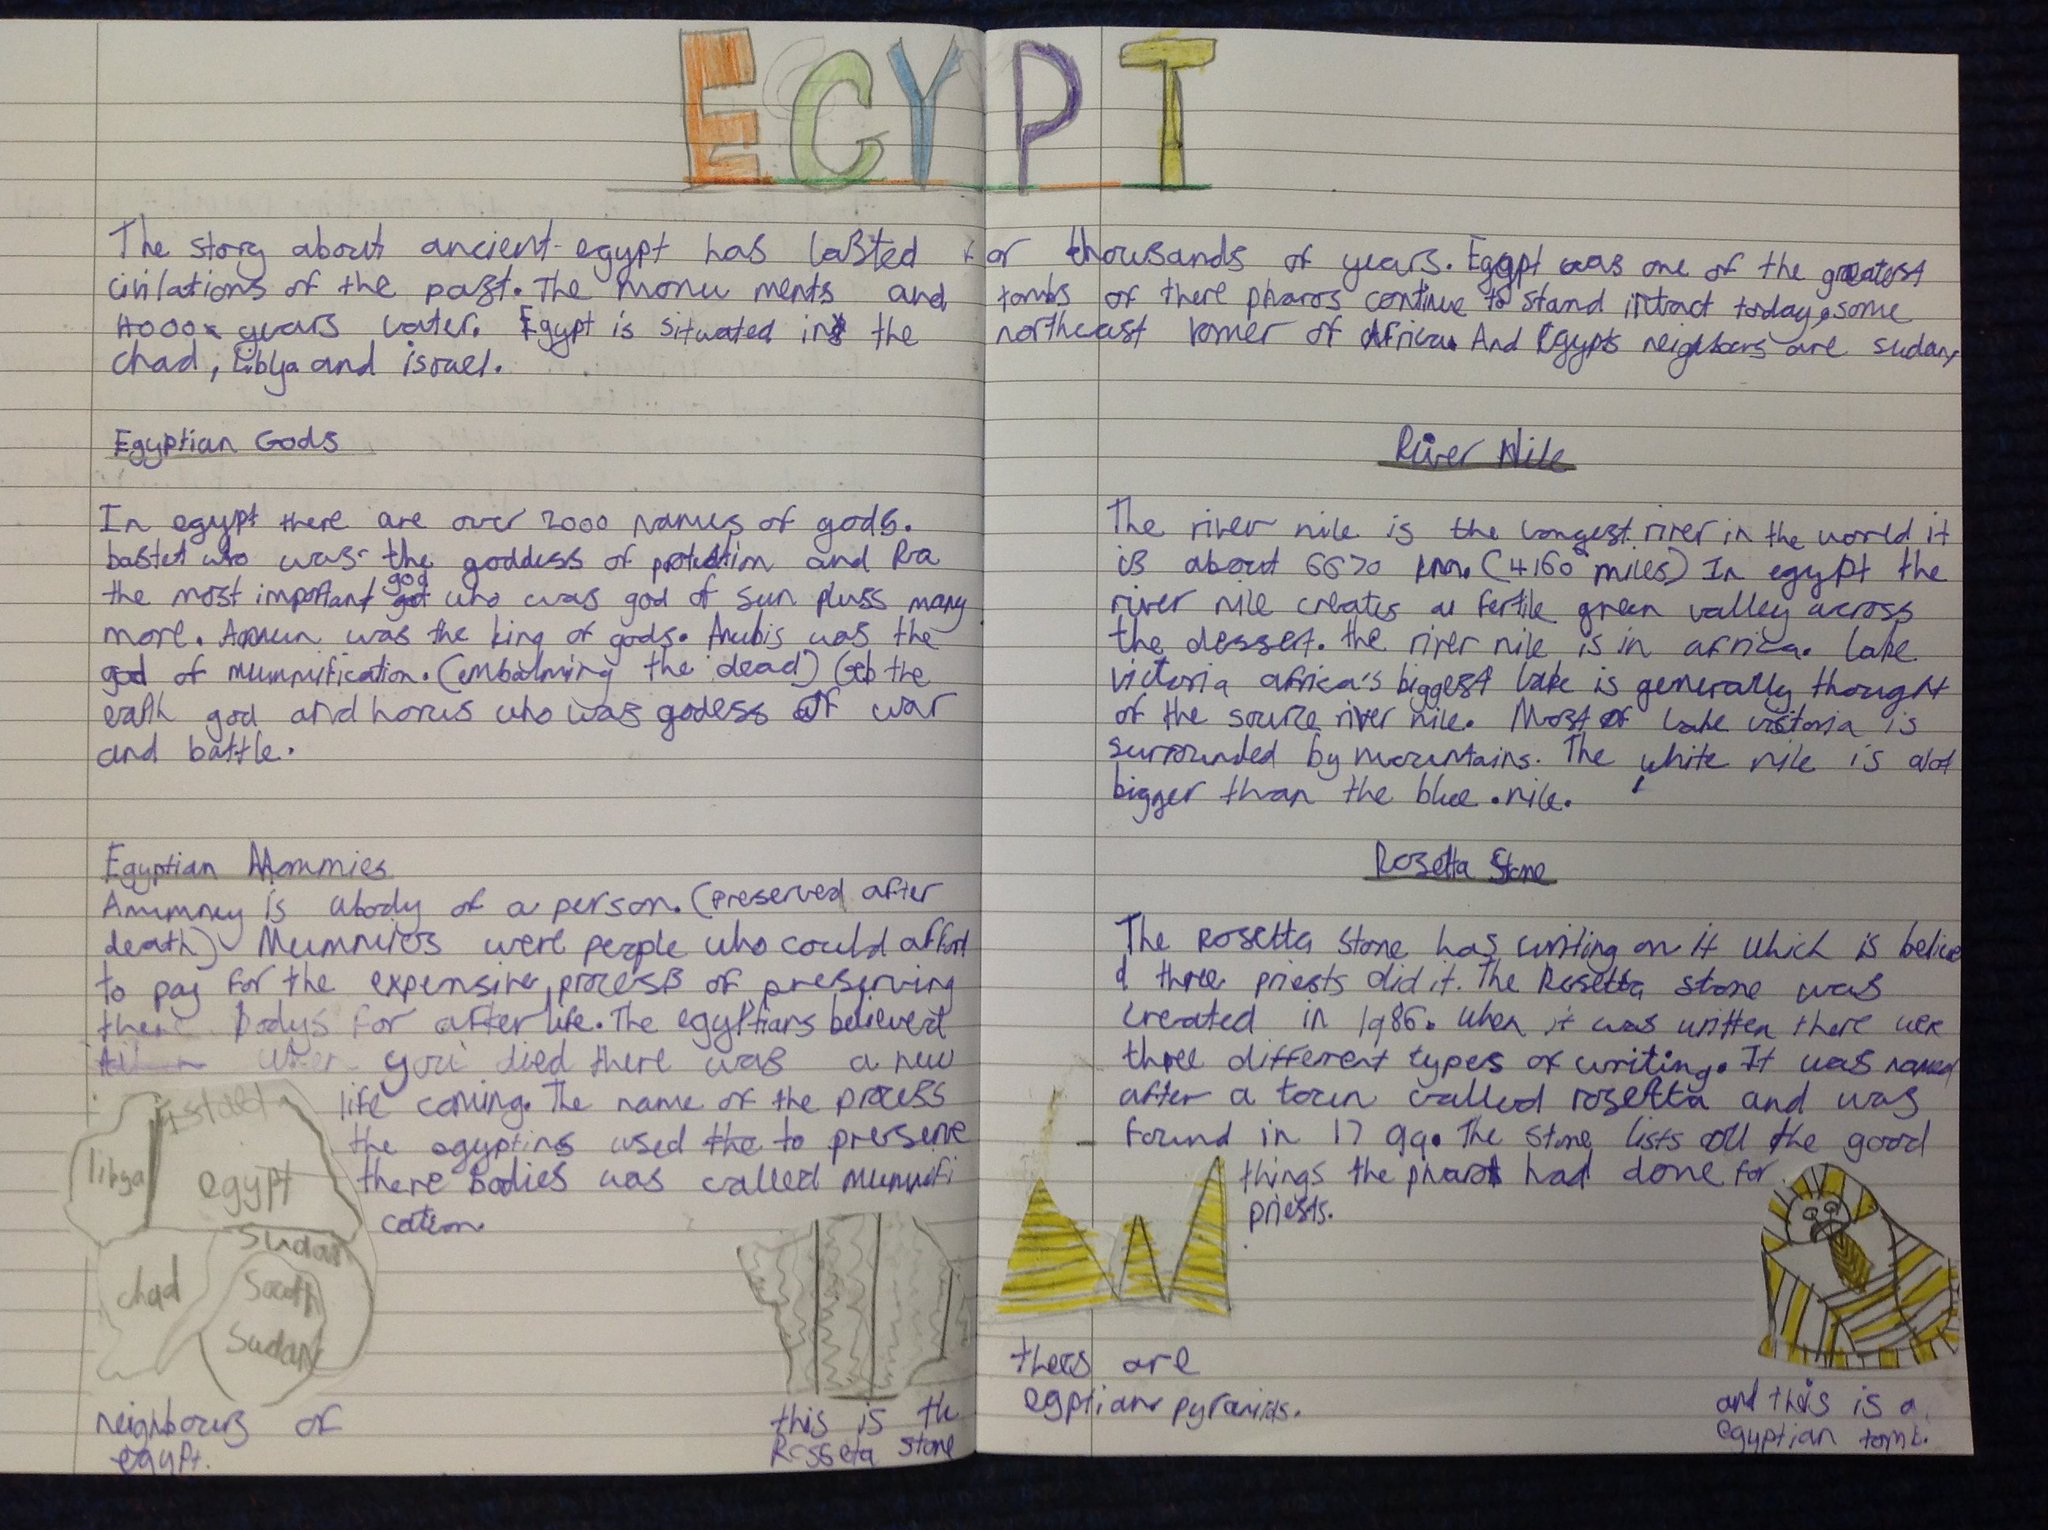 EGYPT
The story about ancient egypt has lasted for thousands of years. Egypt was one of the greatest
civilations of the past. The monu ments and tombs of there pharos continue to stand intract today, some
4000 years later. Egypt is situated in the northeast corner of Africa. And Egypts neighbours are sudan,
chad, Liblya and israel.
Egyptian Gods
In egypt there are over 2000 names of gods.
bastet who was the goddess of protection and Ra
the most important god who was god of sun pluss many
more. Amun was the king of gods. Anubis was the
god of mummification. (embalming the dead) Geb the
earth god and horus who was godess of war
and battle.
Egyptian Mummies
A mumney is abody of a person. (preserved after
death) Mummies were people who could afford
to pay for the expensive process of preserving
there bodys for after life. The egyptians believed
when you died there was a new
life coming. The name of the process
the egyptins used the to preserve
there bodies was called mummifi
cation.
istaeta
libya
egypt
Sudan
chad
South
Sudan
neighbours of
egypt.
this is the
Rosseta stone
River Nile
The river nile is the longest river in the world it
is about 6670 km. (4160 miles) In egypt the
river nile creates a fertile green valley across
the dessert. the river nile is in africa. Lake
victoria africa's biggest lake is generally thought
of the source river nile. Most of lake victoria is
surrounded by mountains. The white nile is alot
bigger than the blue nile.
Rosetta Stone
The rosetta stone has writing on it which is belive
d three priests did it. The Rosetta stone was
created in 1986. When it was written there wer
three different types of writing. It was named
after a town called rosetta and was
found in 17 99. The stone lists all the good
things the pharo had done for
priests.
thees are
egptian pyramids.
and this is a
egyptian tomb.